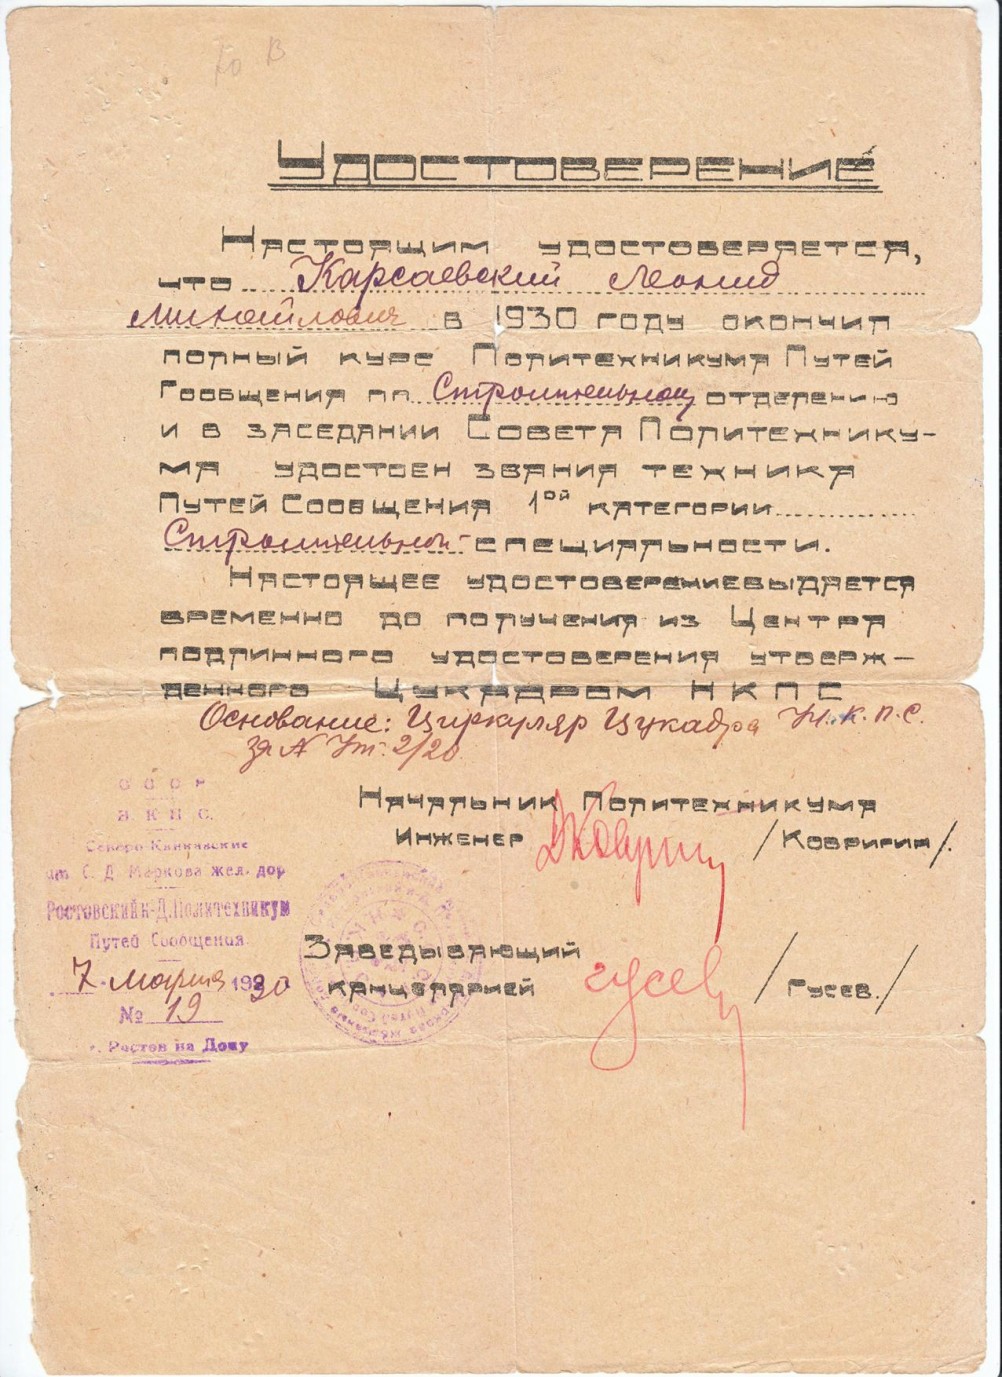 Ко В
Удостоверение
Настоящим удостоверяется,
что Карсаевский Леонид
Михайлович в 1930 году окончил
полный курс Политехникума Путей
Сообщения по Строительному отделению
и в заседании Совета Политехнику-
ма удостоен звания техника
Путей Сообщения 1ой категории
Строительной специальности.
Настоящее удостоверение выдается
временно до получения из Центра
подлинного удостоверения утверж-
денного Цукадром НКПС
Основание: Циркуляр Цукадра Н.К.П.С.
за N Ут. 2/20.
Начальник Политехникума
Инженер /Ковригин/.
Заведывающий
канцелярией Гусев /Гусев./
СССР
Н.К.П.С.
Северо-Кавказские
им. С. Д. Маркова жел. дор
Ростовский н-Д. Политехникум
Путей Сообщения.
7 Марта 1930
№ 19
г. Ростов на Дону